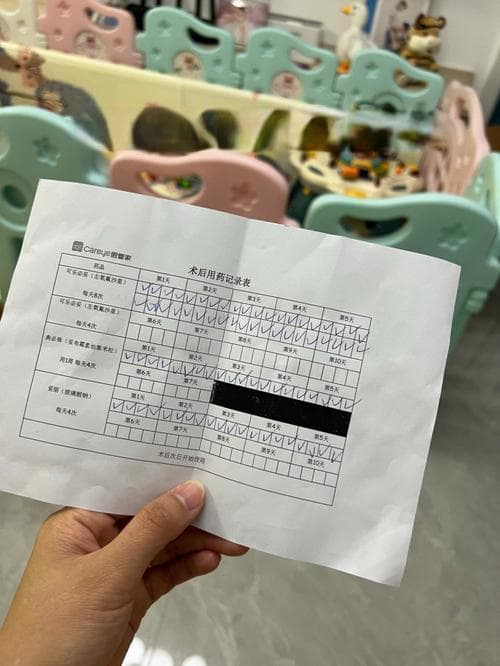 Careye视管家
术后用药记录表
药品 第1天 第2天 第3天 第4天 第5天
可乐必妥（左氧氟沙星）
每天8次
可乐必妥（左氧氟沙星） 第6天 第7天 第8天 第9天 第10天
每天4次
典必殊（妥布霉素地塞米松） 第1天 第2天 第3天 第4天 第5天
用1周 每天4次 第6天 第7天
（玻璃酸钠） 第1天 第2天 第3天 第4天 第5天
每天4次 第6天 第7天 第8天 第9天 第10天
术后次日开始使用